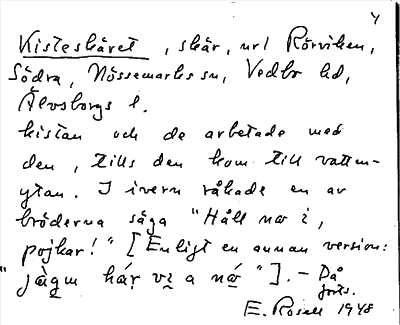 4
Kisteskäret, skär, url Rörviken,
Södra, Nössemarks sn, Vedbo hd,
Älvsborgs l.
kistan och de arbetade med
den, tills den kom till vatten-
ytan. I ivern råkade en av
bröderna säga "Håll nu i,
pojkar!" [Enligt en annan version:
"jäqm hár vi a nó"]. – Då
forts.
E. Rosell 1948